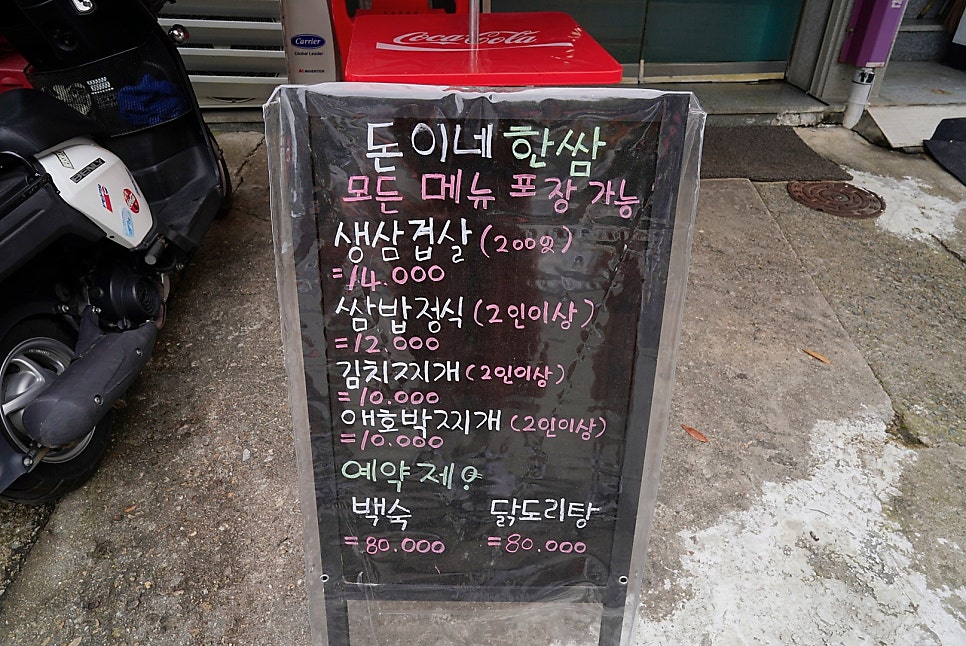 Carrier
Global Leader
INVERTER
Coca-Cola
돈이네 한쌈
모든 메뉴 포장 가능
생삼겹살 (200g)
=14.000
쌈밥정식 (2인이상)
=12.000
김치찌개 (2인이상)
=10.000
애호박찌개 (2인이상)
=10.000
예약제!
백숙 닭도리탕
=80.000 =80.000